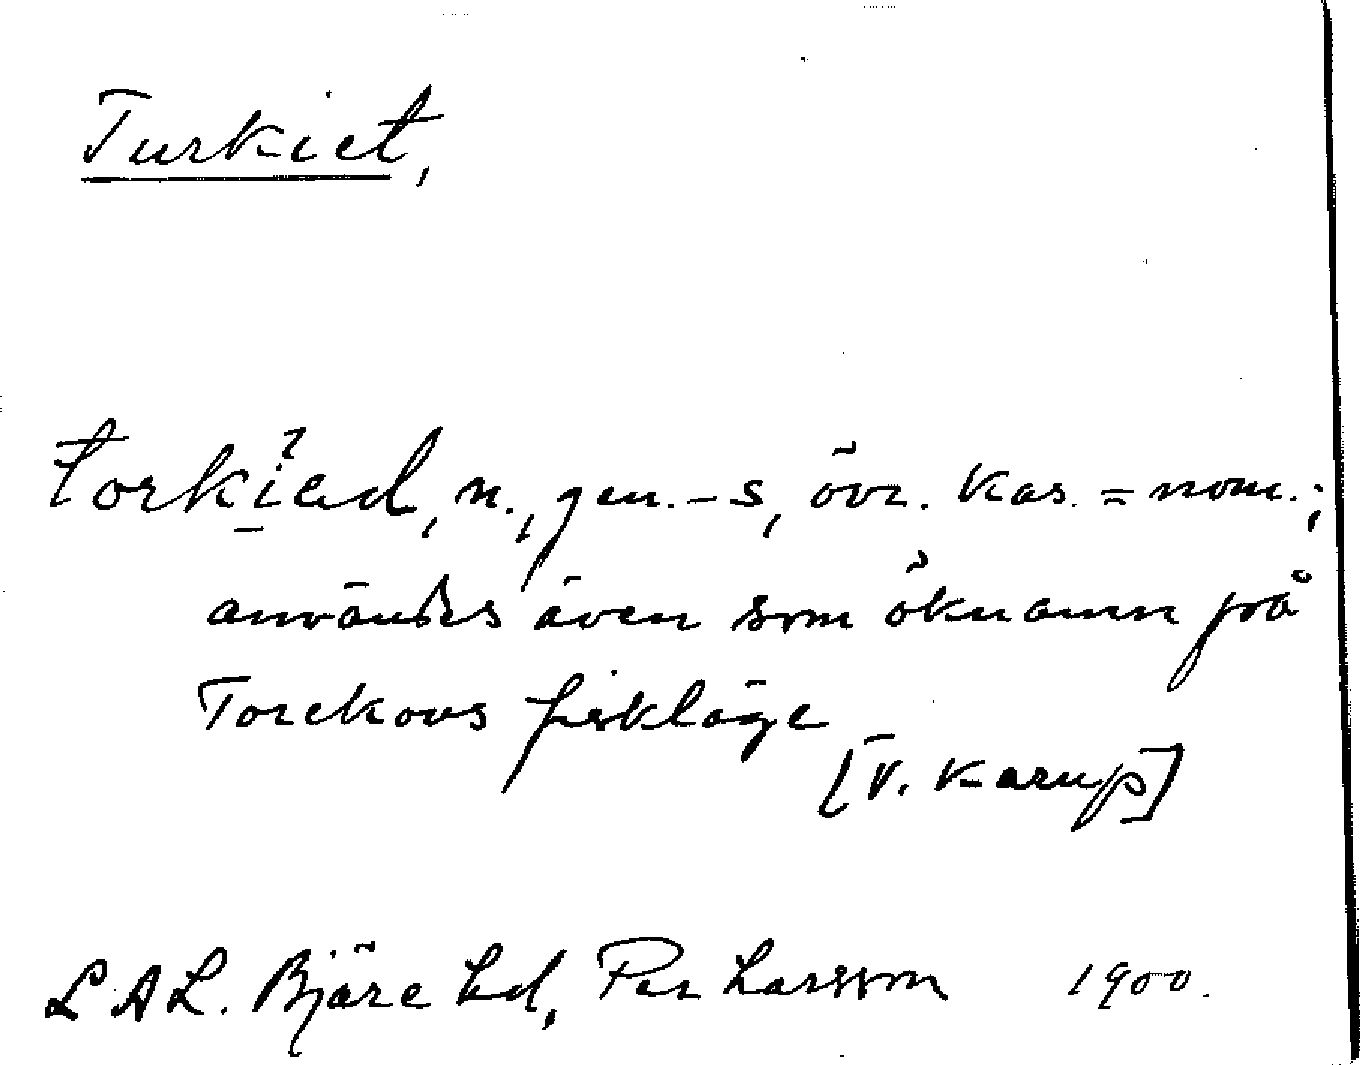 Turkiet,
torkiad, n., gen. -s, övr. kas. = nom.;
användes även som öknamn på
Torekovs fiskläge
[V. Karup]
LAL. Bjäre hd, Per Larsson 1900.